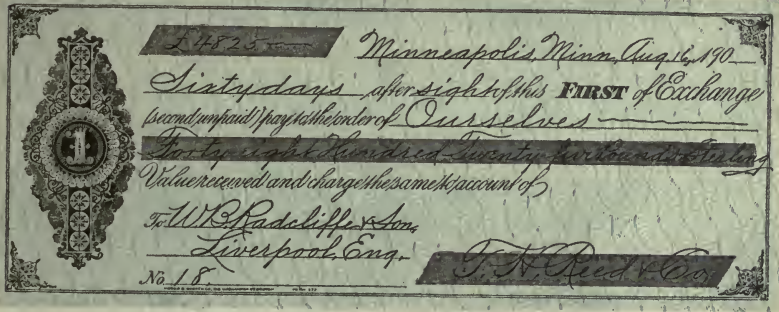 £4825
Minneapolis, Minn, Aug 16, 190
Sixty days after sight of this FIRST of Exchange
(second unpaid) pay to the order of Ourselves
Forty eight Hundred Twenty five Pounds Sterling
Value received and charge the same to account of
To W.B. Radcliffe & Son,
Liverpool, Eng.
No 18 T. N. Reed & Co
1